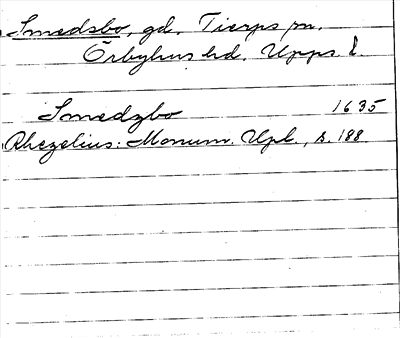 Smedsbo, gd, Tierps sn.
Örbyhus hd. Upps. l.
Smedzbo 1635
Rhezelius: Monum. Upl., s. 188